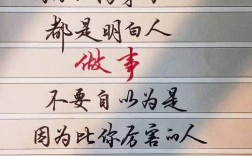 都是明白人
做事
不要自以为是
因为比你厉害的人